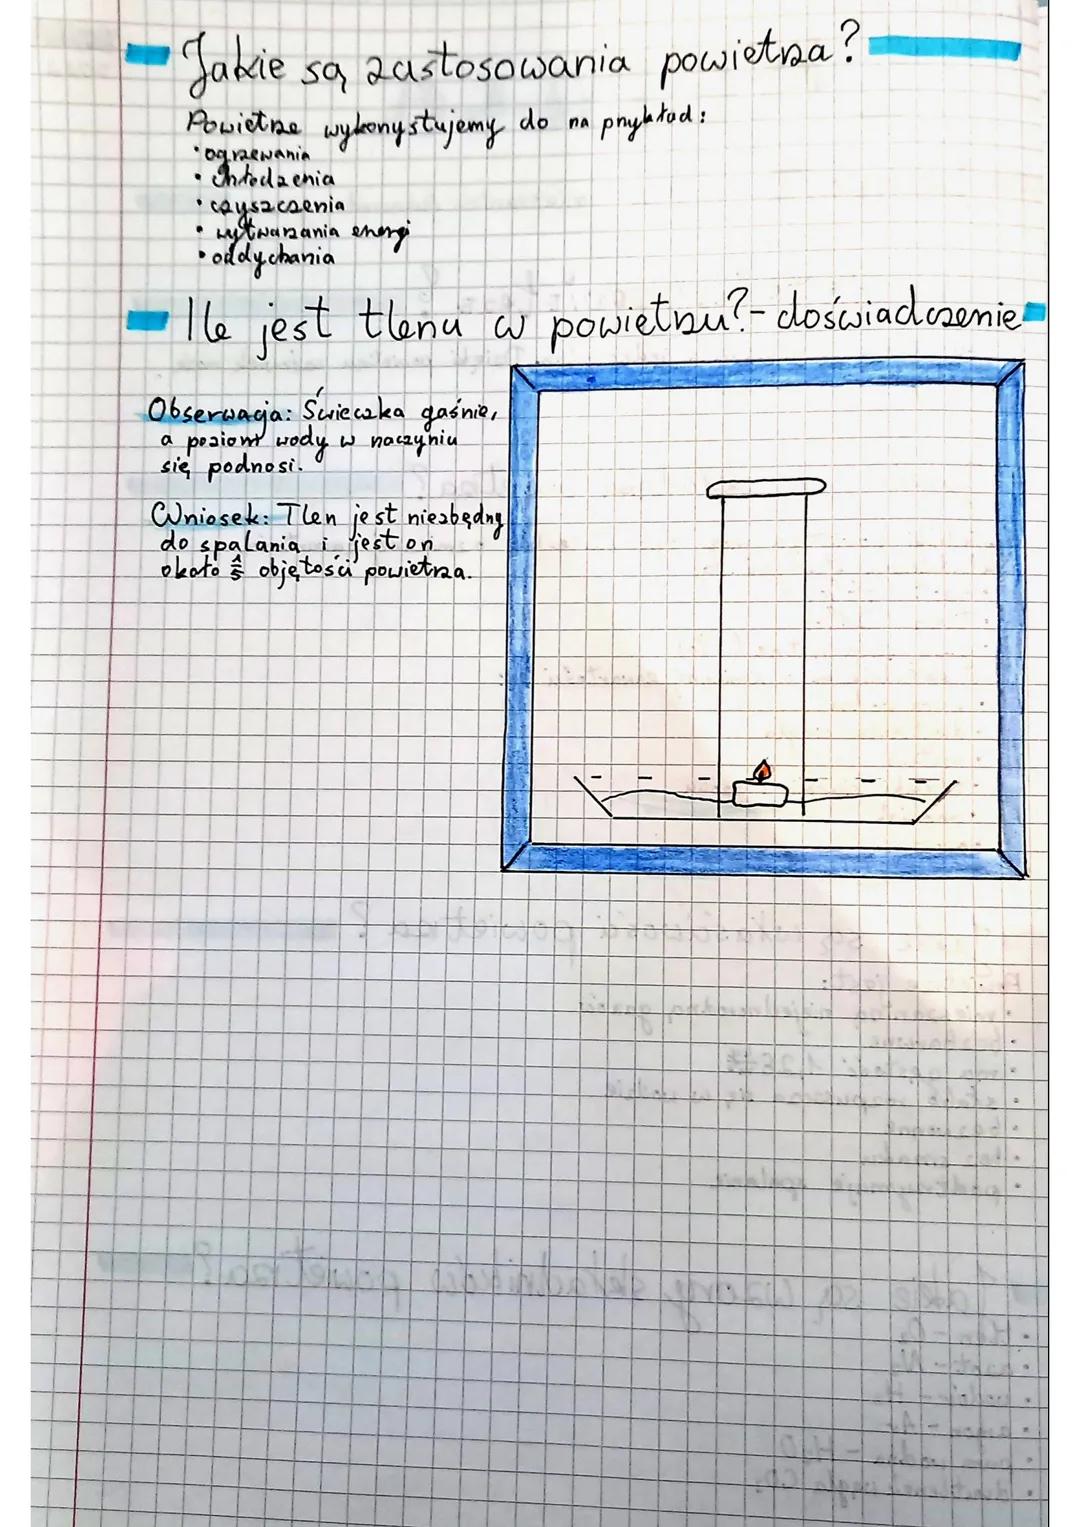 Jakie są zastosowania powietrza?
Powietrze wykorzystujemy do na przykład:
• ogrzewania
• chłodzenia
• czyszczenia
• wytwarzania energi
• oddychania
Ile jest tlenu w powietrzu? - doświadczenie
Obserwacja: Świeczka gaśnie,
a poziom wody w naczyniu
się podnosi.
Wniosek: Tlen jest niezbędny
do spalania i jest on
około 1/5 objętości powietrza.